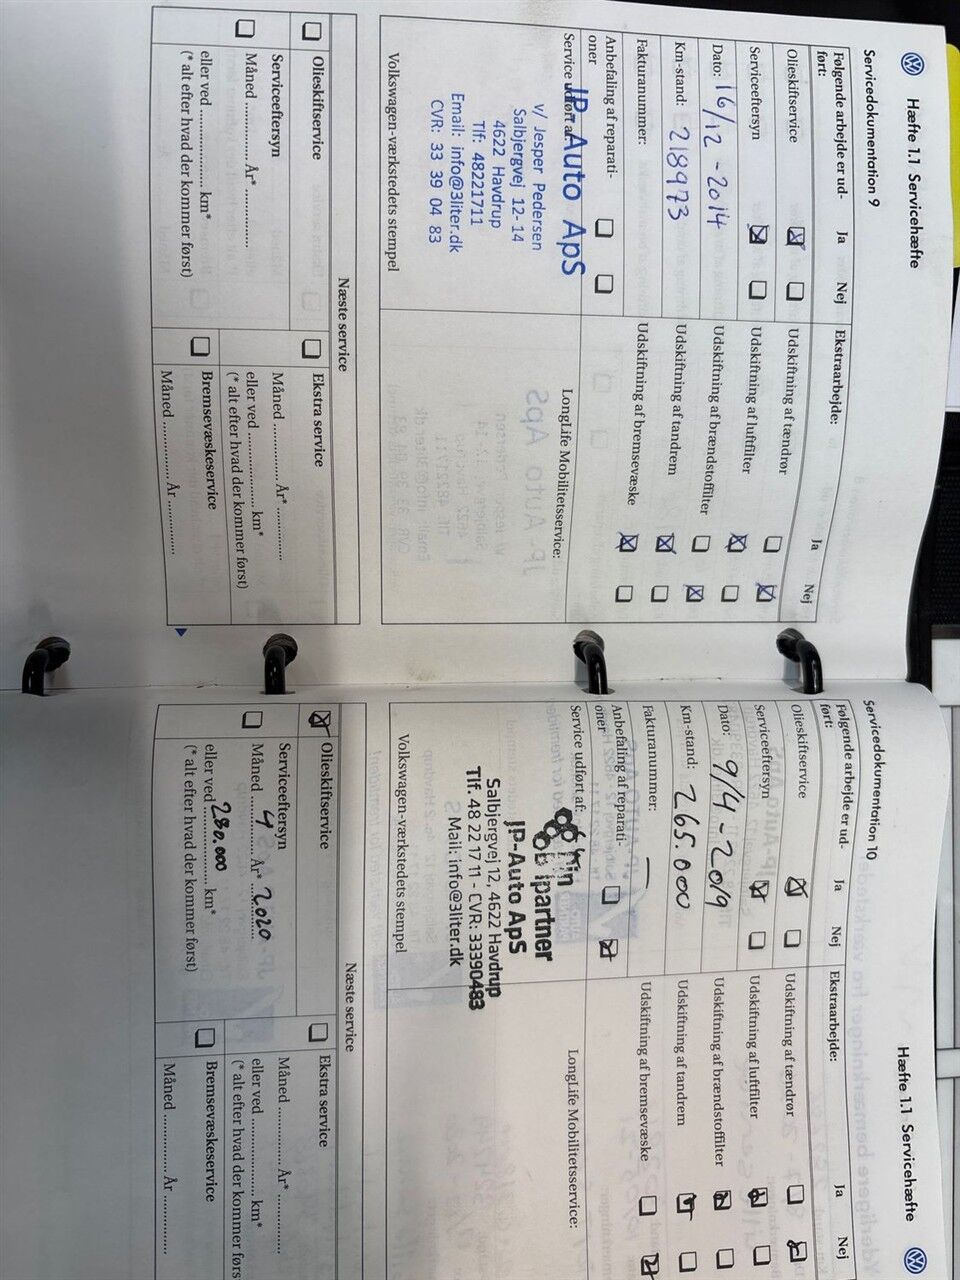 Hæfte 1.1 Servicehæfte
Servicedokumentation 9
Følgende arbejde er ud-
ført:
Ja
Nej
Ekstraarbejde:
Ja
Nej
Olieskiftservice
Udskiftning af tændrør
Serviceeftersyn
Udskiftning af luftfilter
Dato: 16/12-2014
Udskiftning af brændstoffilter
Km-stand: 218973
Udskiftning af tandrem
Fakturanummer:
Udskiftning af bremsevæske
Anbefaling af reparati-
oner
Service udført af:
LongLife Mobilitetsservice:
JP-Auto ApS
v/ Jesper Pedersen
Salbjergvej 12-14
4622 Havdrup
Tlf: 48221711
Email: info@3liter.dk
CVR: 33 39 04 83
Volkswagen-værkstedets stempel
Næste service
Olieskiftservice
Ekstra service
Serviceeftersyn
Måned ............... År* ...............
Måned ............... År* ...............
eller ved ............... km*
eller ved ............... km*
(* alt efter hvad der kommer først)
(* alt efter hvad der kommer først)
Bremsevæskeservice
Måned ............... År ...............
Hæfte 1.1 Servicehæfte
Servicedokumentation 10
Følgende arbejde er ud-
ført:
Ja
Nej
Ekstraarbejde:
Ja
Nej
Olieskiftservice
Udskiftning af tændrør
Serviceeftersyn
Udskiftning af luftfilter
Dato: 9/4-2019
Udskiftning af brændstoffilter
Km-stand: 265.000
Udskiftning af tandrem
Fakturanummer: —
Udskiftning af bremsevæske
Anbefaling af reparati-
oner
Service udført af:
LongLife Mobilitetsservice:
partner
JP-Auto ApS
Salbjergvej 12, 4622 Havdrup
Tlf. 48 22 17 11 - CVR: 33390483
Mail: info@3liter.dk
Volkswagen-værkstedets stempel
Næste service
Olieskiftservice
Ekstra service
Serviceeftersyn
Måned ...... 4 ...... År* ...2020...
Måned ............... År* ...............
eller ved 280.000 km*
eller ved ............... km*
(* alt efter hvad der kommer først)
(* alt efter hvad der kommer førs
Bremsevæskeservice
Måned ............... År ...............